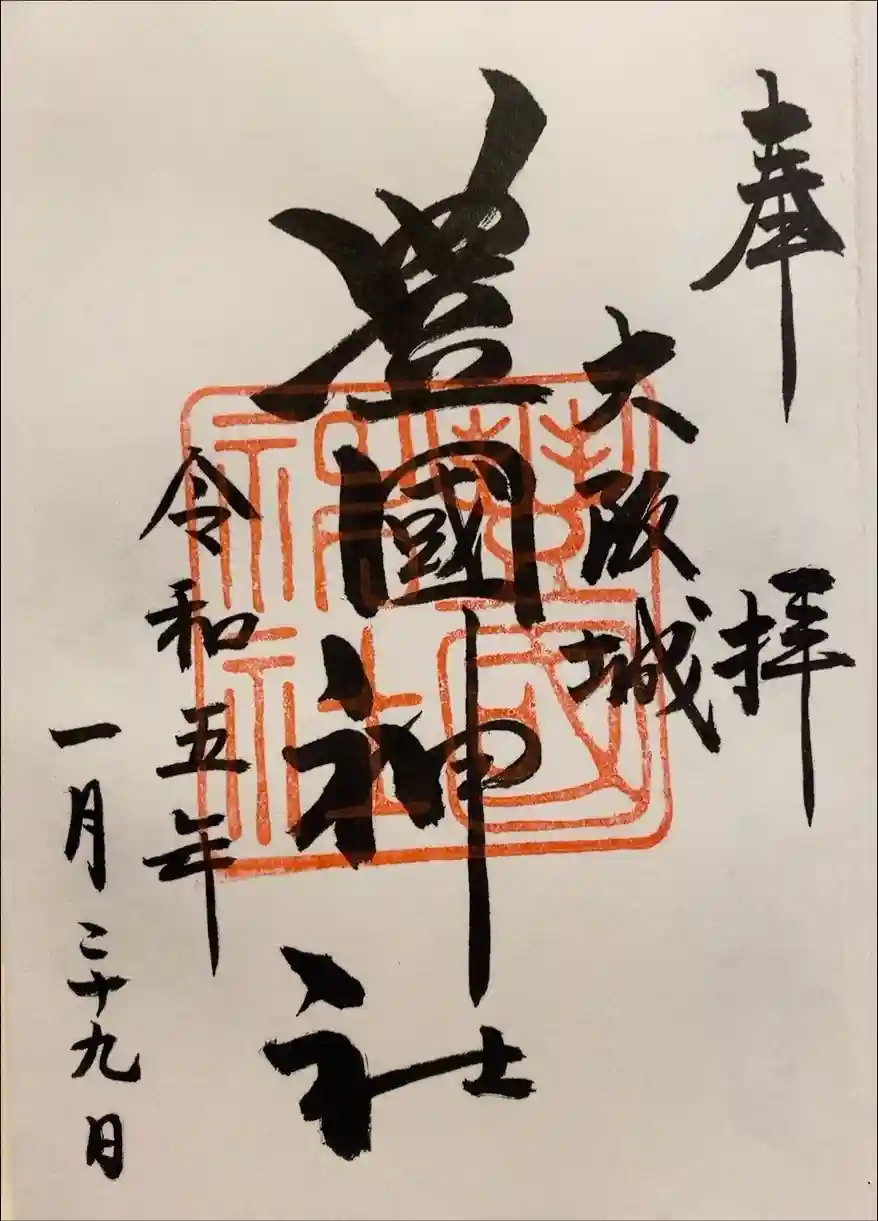 奉拝
大阪城
豊國神社
豊國神社
令和五年
一月二十九日